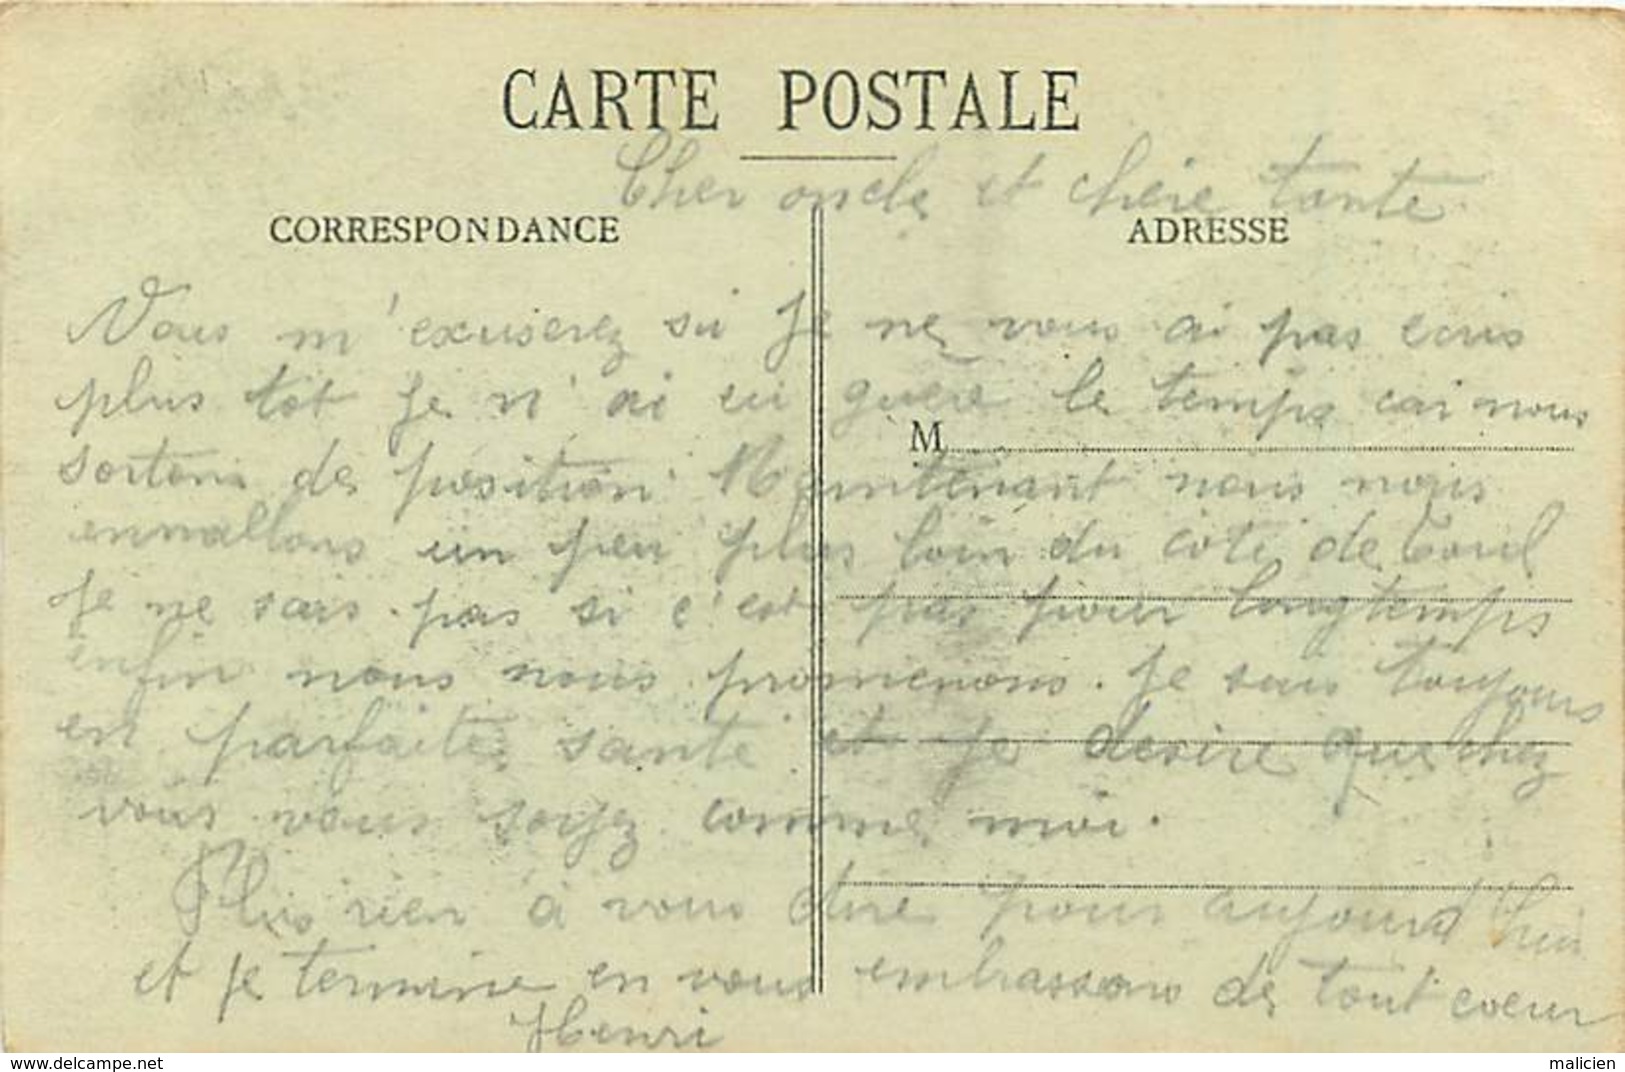 CARTE POSTALE
Cher oncle et chère tante
CORRESPONDANCE
ADRESSE
Vous m'exuserez si je ne vous ai pas ecris
plus tôt je n'ai eu guère le temps car nous
M
sortons de position Maintenant nous nous
ennallons un peu plus loin du coté de Toul
Je ne sais pas si c'est pas pour longtemps
enfin nous nous promenons. Je suis toujours
en parfaite santé et je desire que chez
vous vous soyez comme moi.
Plus rien à vous dire pour aujourd'hui
et je termine en vous embrassans de tout coeur
Henri
https://www.delcampe.net
malicien